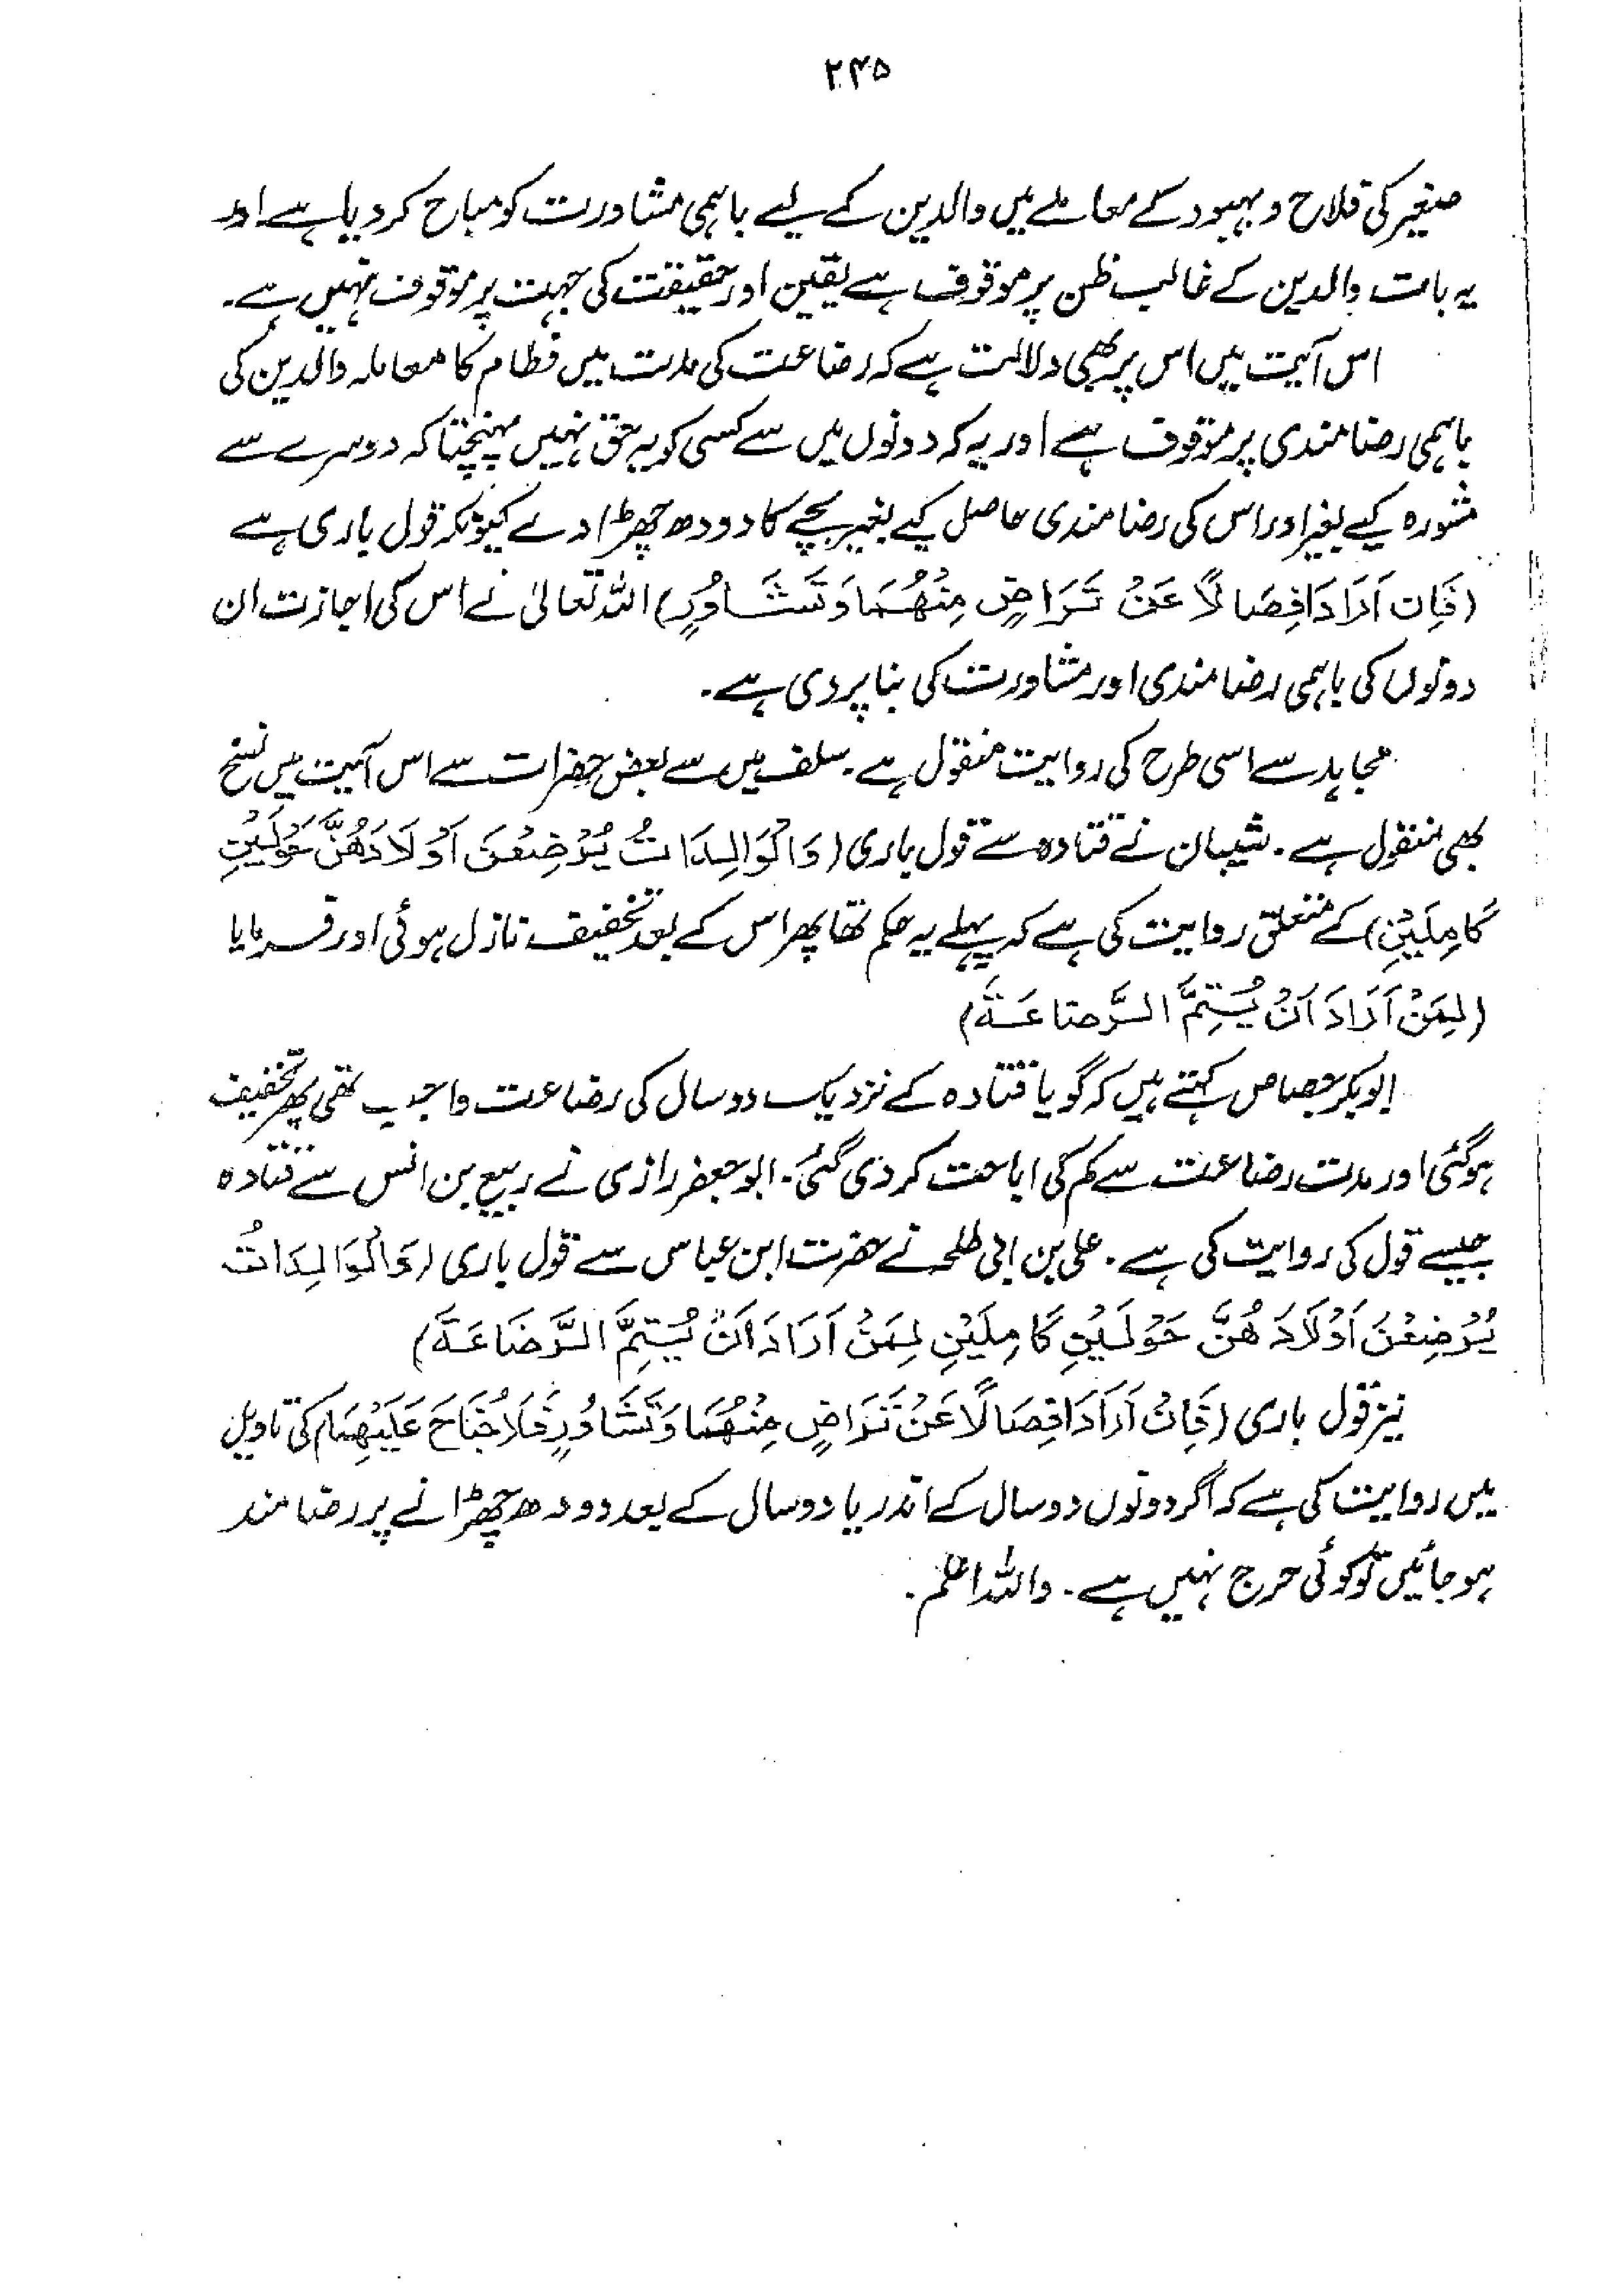 ۲۴۵
صغیر کی فلاح و بہبود کے معاملے میں والدین کے لیے باہمی مشاورت کو مباح کر دیا ہے اور
یہ بات والدین کے غالب ظن پر موقوف ہے یقین اور حقیقت کی جہت پر موقوف نہیں ہے۔
اس آیت میں اس پر بھی دلالت ہے کہ رضاعت کی مدت میں فطام کا معاملہ والدین کی
باہمی رضامندی پر موقوف ہے اور یہ کہ دونوں میں سے کسی کو یہ حق نہیں پہنچتا کہ دوسرے سے
مشورہ کیے بغیر اور اس کی رضامندی حاصل کیے بغیر بچے کا دودھ چھڑا دے کیونکہ قول باری ہے
(فَاِنْ اَرَادَا فِصَالًا عَنْ تَرَاضٍ مِنْهُمَا وَتَشَاوُرٍ) اللہ تعالیٰ نے اس کی اجازت ان
دونوں کی باہمی رضامندی اور مشاورت کی بنا پر دی ہے۔
مجاہد سے اسی طرح کی روایت منقول ہے۔ سلف میں سے بعض حضرات سے اس آیت میں نسخ
بھی منقول ہے۔ شیبان نے قتادہ سے قول باری (وَالْوَالِدَاتُ يُرْضِعْنَ اَوْلَادَهُنَّ حَوْلَيْنِ
كَامِلَيْنِ) کے متعلق روایت کی ہے کہ پہلے یہ حکم تھا پھر اس کے بعد تخفیف نازل ہوئی اور فرمایا
(لِمَنْ اَرَادَ اَنْ يُتِمَّ الرَّضَاعَةَ)
ابوبکر جصاص کہتے ہیں کہ گویا قتادہ کے نزدیک دو سال کی رضاعت واجب تھی پھر تخفیف
ہوگئی اور مدت رضاعت سے کم کی اباحت کر دی گئی۔ ابوجعفر رازی نے ربیع بن انس سے قتادہ
جیسے قول کی روایت کی ہے۔ علی بن ابی طلحہ نے حضرت ابن عباس سے قول باری (وَالْوَالِدَاتُ
يُرْضِعْنَ اَوْلَادَهُنَّ حَوْلَيْنِ كَامِلَيْنِ لِمَنْ اَرَادَ اَنْ يُتِمَّ الرَّضَاعَةَ)
نیز قول باری (فَاِنْ اَرَادَا فِصَالًا عَنْ تَرَاضٍ مِنْهُمَا وَتَشَاوُرٍ فَلَا جُنَاحَ عَلَيْهِمَا) کی تاویل
میں روایت کی ہے کہ اگر دونوں دو سال کے اندر یا دو سال کے بعد دودھ چھڑانے پر رضامند
ہو جائیں تو کوئی حرج نہیں ہے۔ واللہ اعلم۔